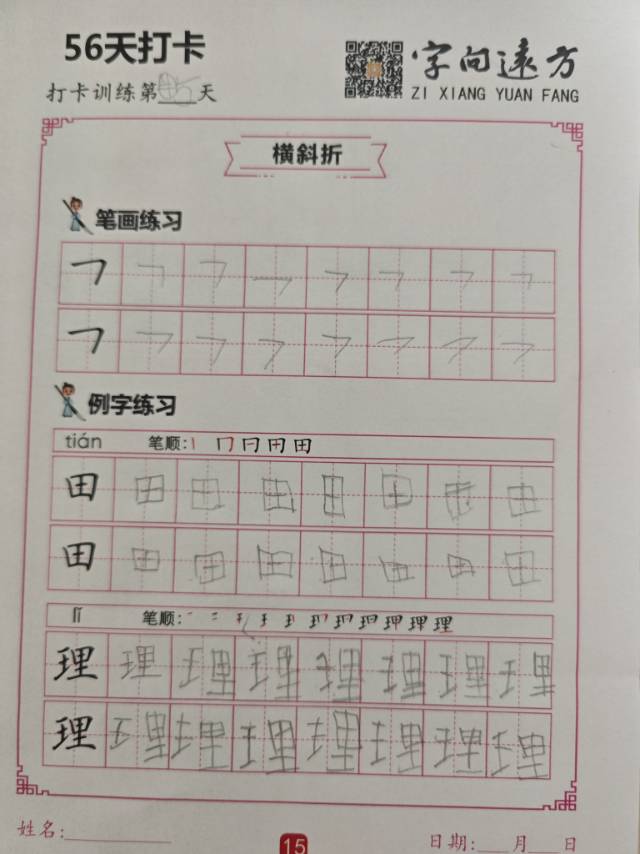 56天打卡
打卡训练第 天
字向远方
ZI XIANG YUAN FANG
横斜折
笔画练习
例字练习
tián 笔顺: 丨 冂 日 田 田
田 田 田 田 田 田 田 田
田 田 田 田 田 田 田 田
lǐ 笔顺:
理 理 理 理 理 理 理 理
理 理 理 理 理 理 理 理
姓名:
15
日期: 月 日